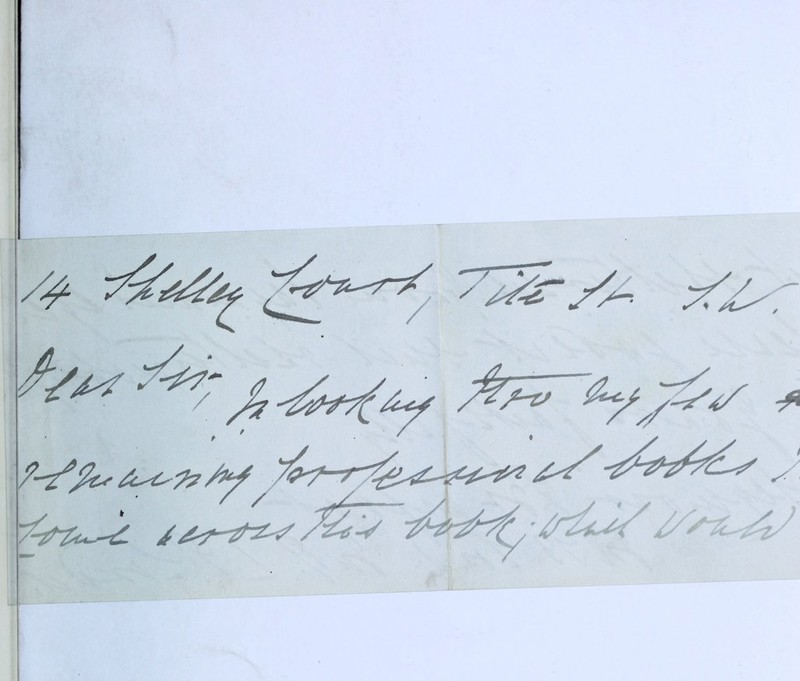 14 Shelley Court, Tite St. S.W.
Dear Sir,
In looking thro my few
remaining professional books I
come across this book; which would